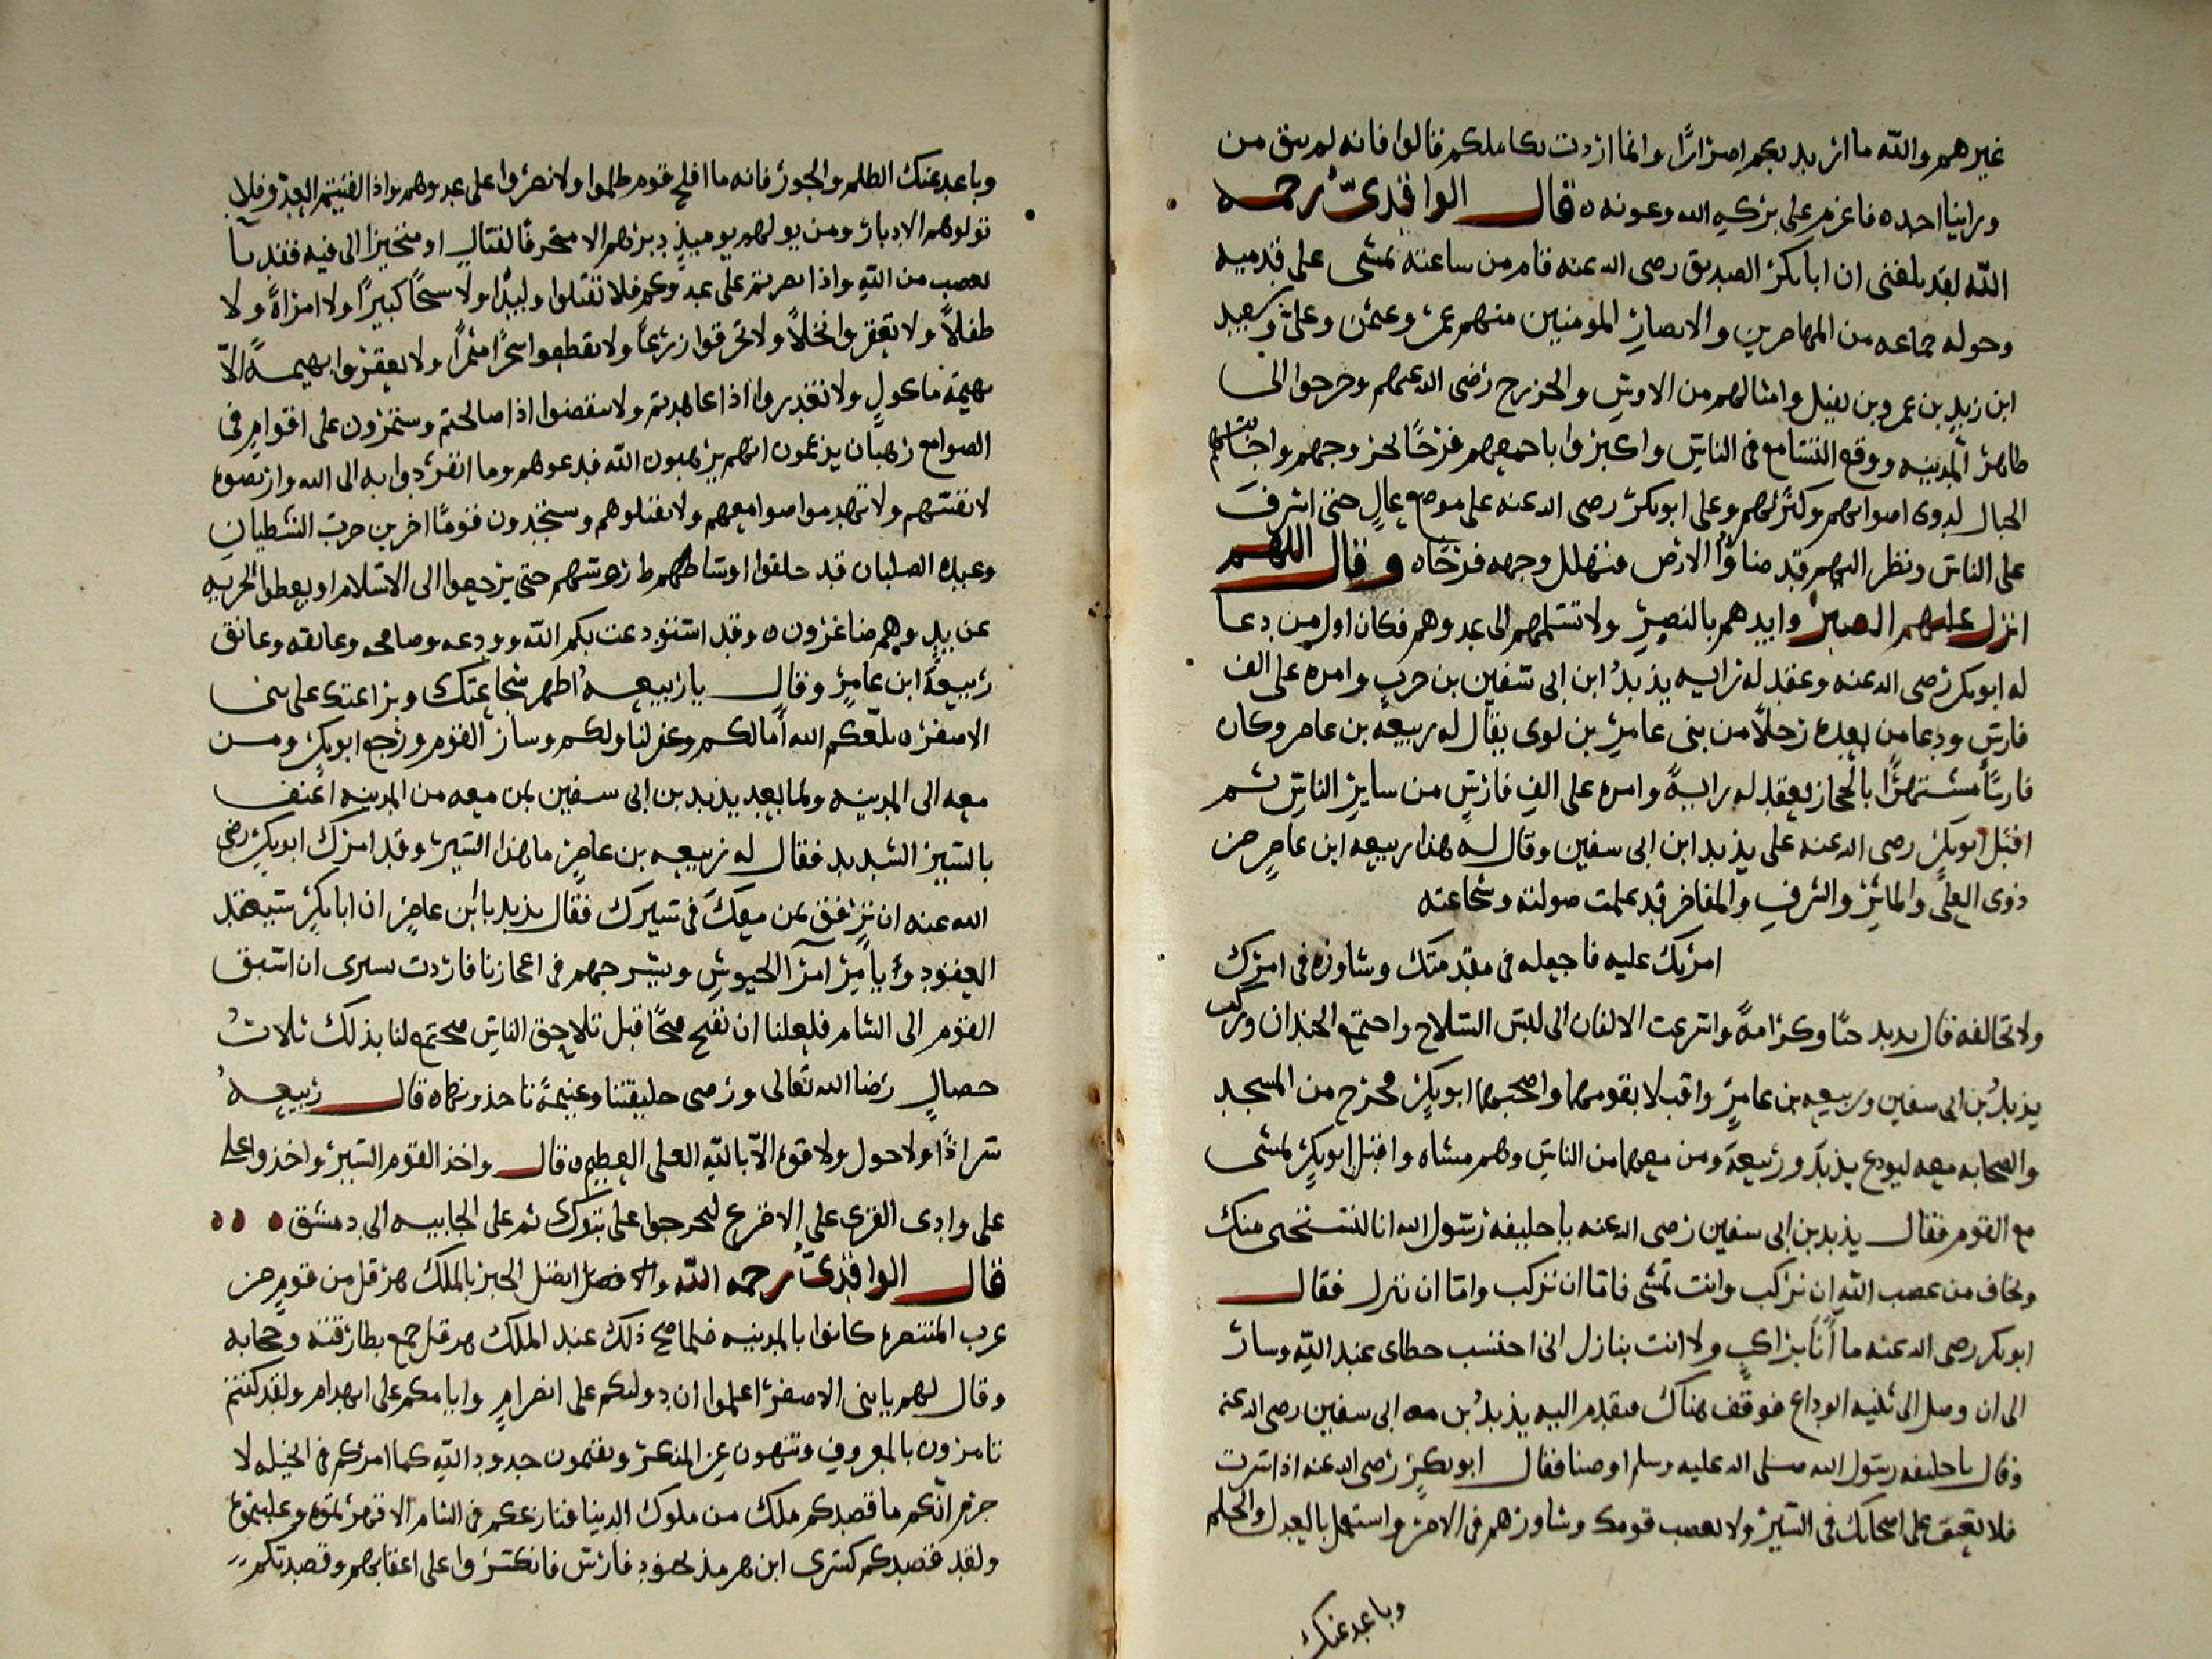 غيرهم والله ما اريد بكم اضرارا وانما اردت تكاملكم فقالوا فانه لم يبق من
وراينا احد ه فاعزم على بركه الله وعونه ه قال الواقدي رحمه
الله لقد بلغني ان ابا بكر الصديق رضي الله عنه قام من ساعته يمشي على قدميه
وحوله جماعه من المهاجرين والانصار المومنين منهم عمر وعثمن وعلي وسعيد
ابن زيد بن عمرو بن نفيل وامثالهم من الاوس والخزرج رضي الله عنهم وخرجوا الى
ظاهر المدينه ووقع التسامع في الناس واكبروا باجمعهم فرحا لخروجهم واجابتهم
الجبال لدوي اصواتهم وكثرتهم وعلى ابو بكر رضي الله عنه على موضع عال حتى اشرف
على الناس ونظر اليهم قد ملاؤا الارض فتهلل وجهه فرحا ه وقال اللهم
انزل عليهم الصبر وايدهم بالنصر ولا تسلمهم الى عدوهم فكان اول من دعا
له ابو بكر رضي الله عنه وعقد له رايه يزيد ابن ابي سفين بن حرب وامره على الف
فارس ودعا من بعده رجلا من بني عامر بن لوى يقال له ربيعه بن عامر وكان
فارسا مشتهرا بالحجاز فعقد له راية وامره على الف فارس من ساير الناس ثم
اقبل ابو بكر رضي الله عنه على يزيد ابن ابي سفين وقال له هذا ربيعه ابن عامر من
ذوى العلى والماثر والشرف والمفاخر قد علمت صولته وشجاعته
امرتك عليه فاجعله في مقدمتك وشاوره في امرك
ولا تخالفه قال يزيد حبا وكرامة واسرعت الالفان الى لبس السلاح واجتمع الجندان وركب
يزيد بن ابي سفين وربيعه بن عامر واقبلا بقومهما واصحبهما ابو بكر فخرج من المسجد
والصحابه معه ليودع يزيد وربيعة ومن معهما من الناس وهم مشاه واقبل ابو بكر يمشي
مع القوم فقال يزيد بن ابي سفين رضي الله عنه يا خليفه رسول الله انا لنستحى منك
ونخاف من غضب الله ان نركب وانت تمشي فاما ان تركب واما ان ننزل فقال
ابو بكر رضي الله عنه ما أنا براكب ولا انت بنازل اني احتسب خطاى عند الله وسار
الى ان وصل الى ثنيه الوداع فوقف هناك فتقدم اليه يزيد بن ابي سفين رضي الله عنه
وقال يا خليفه رسول الله صلى الله عليه وسلم اوصنا فقال ابو بكر رضي الله عنه اذا سرت
فلا تضيق على اصحابك في السير ولا تغضب قومك وشاورهم في الامر واستعمل بالعدل والحلم
وباعد عنك
وباعد عنك الظلم والجور فانه ما افلح قوم ظلموا ولا نصروا على عدوهم واذا لقيتم العدو فلا
تولوهم الادبار ومن يولهم يوميذ دبره الا متحرفا لقتال او متحيزا الى فيه فقد با
بغضب من الله واذا نصرتم على عدوكم فلا تقتلوا وليدا ولا شيخا كبيرا ولا امراة ولا
طفلا ولا تعقروا نخلا ولا تحرقوا زرعا ولا تقطعوا شجرا مثمرا ولا تعقروا بهيمة الا
بهيمة ماكول ولا تغدروا اذا عاهدتم ولا تنقضوا اذا صالحتم وستمرون على اقوام في
الصوامع رهبان يزعمون انهم يرهبون الله فدعوهم وما انفردوا به الى الله وارتضوه
لانفسهم ولا تهدموا صوامعهم ولا تقتلوهم وستجدون قوما اخرين حزب الشيطان
وعبدة الصلبان قد حلقوا اوساط روسهم حتى يرجعوا الى الاسلام او يعطوا الجزيه
عن يد وهم صاغرون ه وقد استودعت بكم الله وودعه وصافحه وعانقه وعانق
ربيعة ابن عامر وقال يا ربيعه اظهر شجاعتك وبراعتك على بني
الاصفر بلغكم الله آمالكم وغفر لنا ولكم وسار القوم ورجع ابو بكر ومن
معه الى المدينه ولما بعد يزيد بن ابي سفين بمن معه من المدينه اعنف
بالسير الشديد فقال له ربيعه بن عامر ما هذا السير وقد امرك ابو بكر رضي
الله عنه ان ترفق بمن معك في سيرك فقال يزيد يا بن عامر ان ابا بكر سيعقد
العقود ويامر امرآ الجيوش ويسرحهم في اعجازنا فاردت بسيرى ان اسبق
القوم الى الشام فلعلنا ان نفتح فتحا قبل تلاحق الناس فيجتمع لنا بذلك ثلاث
خصال رضا الله تعالى ورضى خليفتنا وغنيمة ناخذونها ه قال ربيعه
سر اذا ولا حول ولا قوة الا بالله العلي العظيم ه قال واخذ القوم السير واخذوا على
على وادى القرى على الاقرع ليخرجوا على تبوك ثم على الجابيه الى دمشق ه ه ه
قال الواقدي رحمه الله واتصل الخبر بالملك هرقل من قوم من
عرب المتنصرة كانوا بالمدينه فلما صح ذلك عند الملك هرقل جمع بطارقته وحجابه
وقال لهم يا بني الاصفر اعلموا ان دولتكم على انصرام وايامكم على انهدام ولقد كنتم
تامرون بالمعروف وتنهون عن المنكر وتقيمون حدود الله كما امركم في انجيله لا
جرم انكم ما قصدكم ملك من ملوك الدنيا فنازعكم في الشام الا قهرتموه وغلبتموه
ولقد قصدكم كسرى ابن هرمز بجنود فارس فانكسروا على اعقابهم وقصدتكم